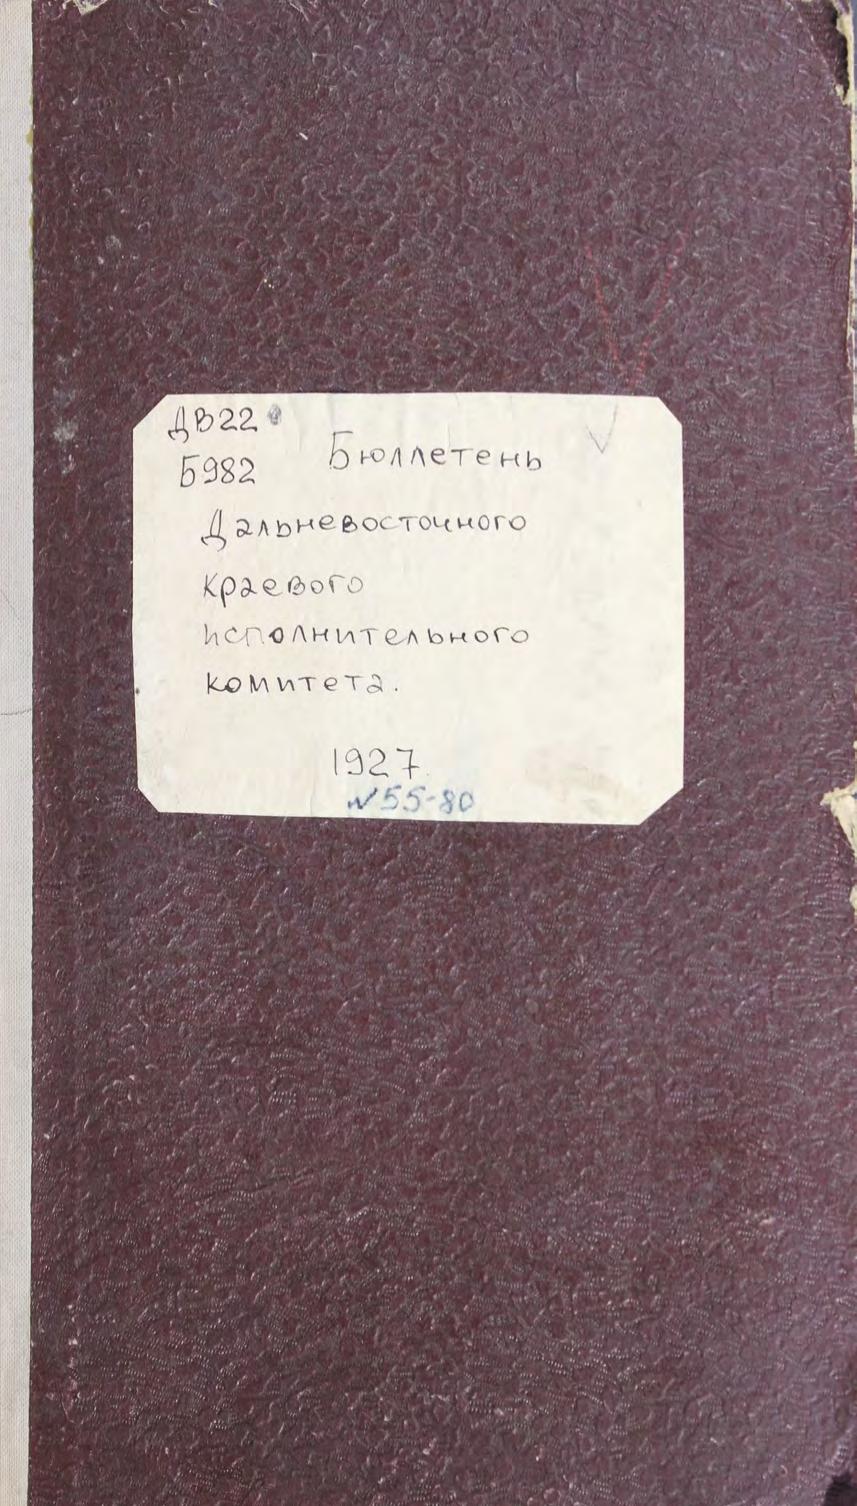 ДВ22
Б982
Бюллетень
Дальневосточного
краевого
исполнительного
комитета.
1927
№55-80